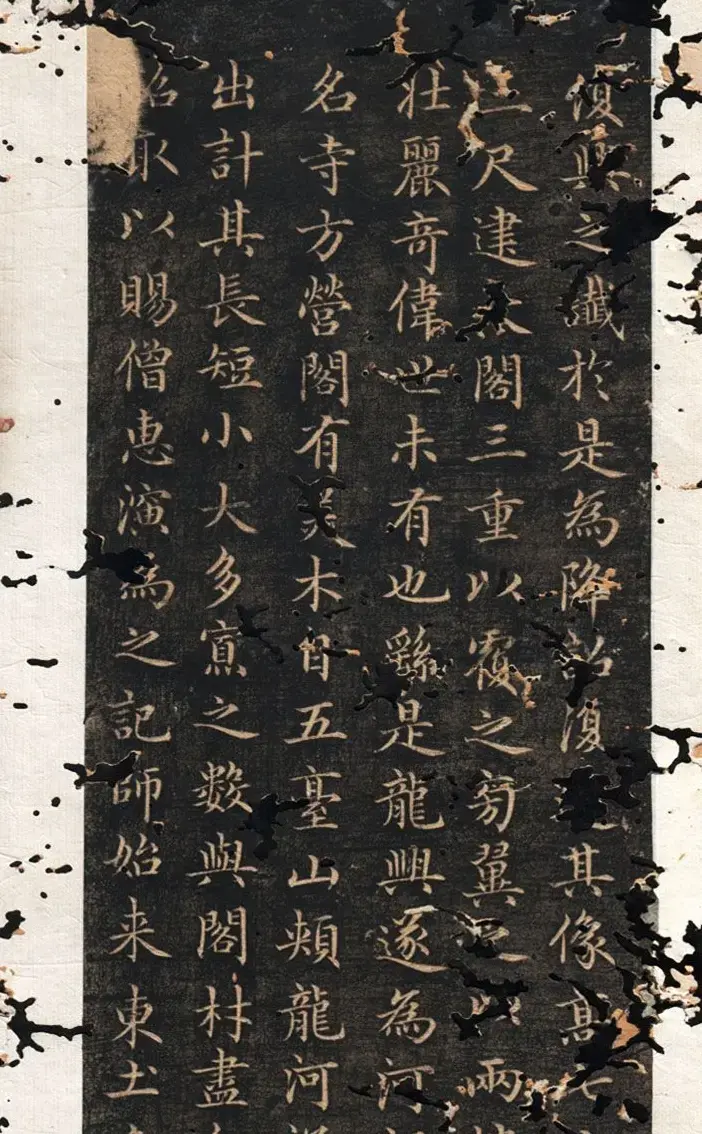 復興之讖於是為降詔復其像髙七
三尺建大閣三重以覆之旁翼之以兩
壯麗奇偉世未有也繇是龍興遂為河
名寺方營閣有美木自五臺山頰龍河
出計其長短小大多寡之數與閣材盡
詔取以賜僧惠演為之記師始来東土